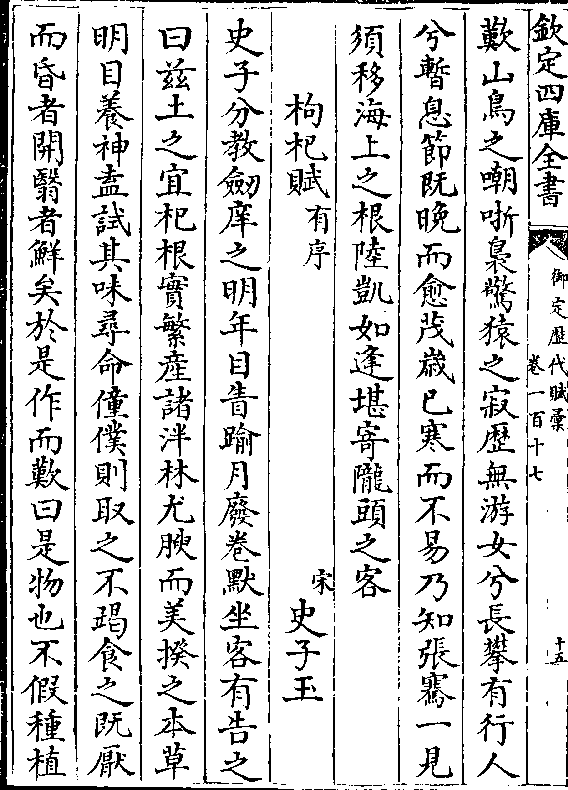 欽定四庫全書
御定歷代賦彙
卷一百十七
十五
歎山鳥之嘲哳裊驚猿之寂歷無游女兮長攀有行人
兮暫息節既晚而愈茂歲已寒而不易乃知張騫一見
須移海上之根陸凱如逢堪寄隴頭之客
枸杞賦有序
宋史子玉
史子分教劒庠之明年目眚踰月廢卷默坐客有告之
曰兹土之宜杞根實繁產諸泮林尤腴而美揆之本草
明目養神盍試其味尋命僮僕則取之不竭食之既厭
而昏者開翳者鮮矣於是作而歎曰是物也不假種植